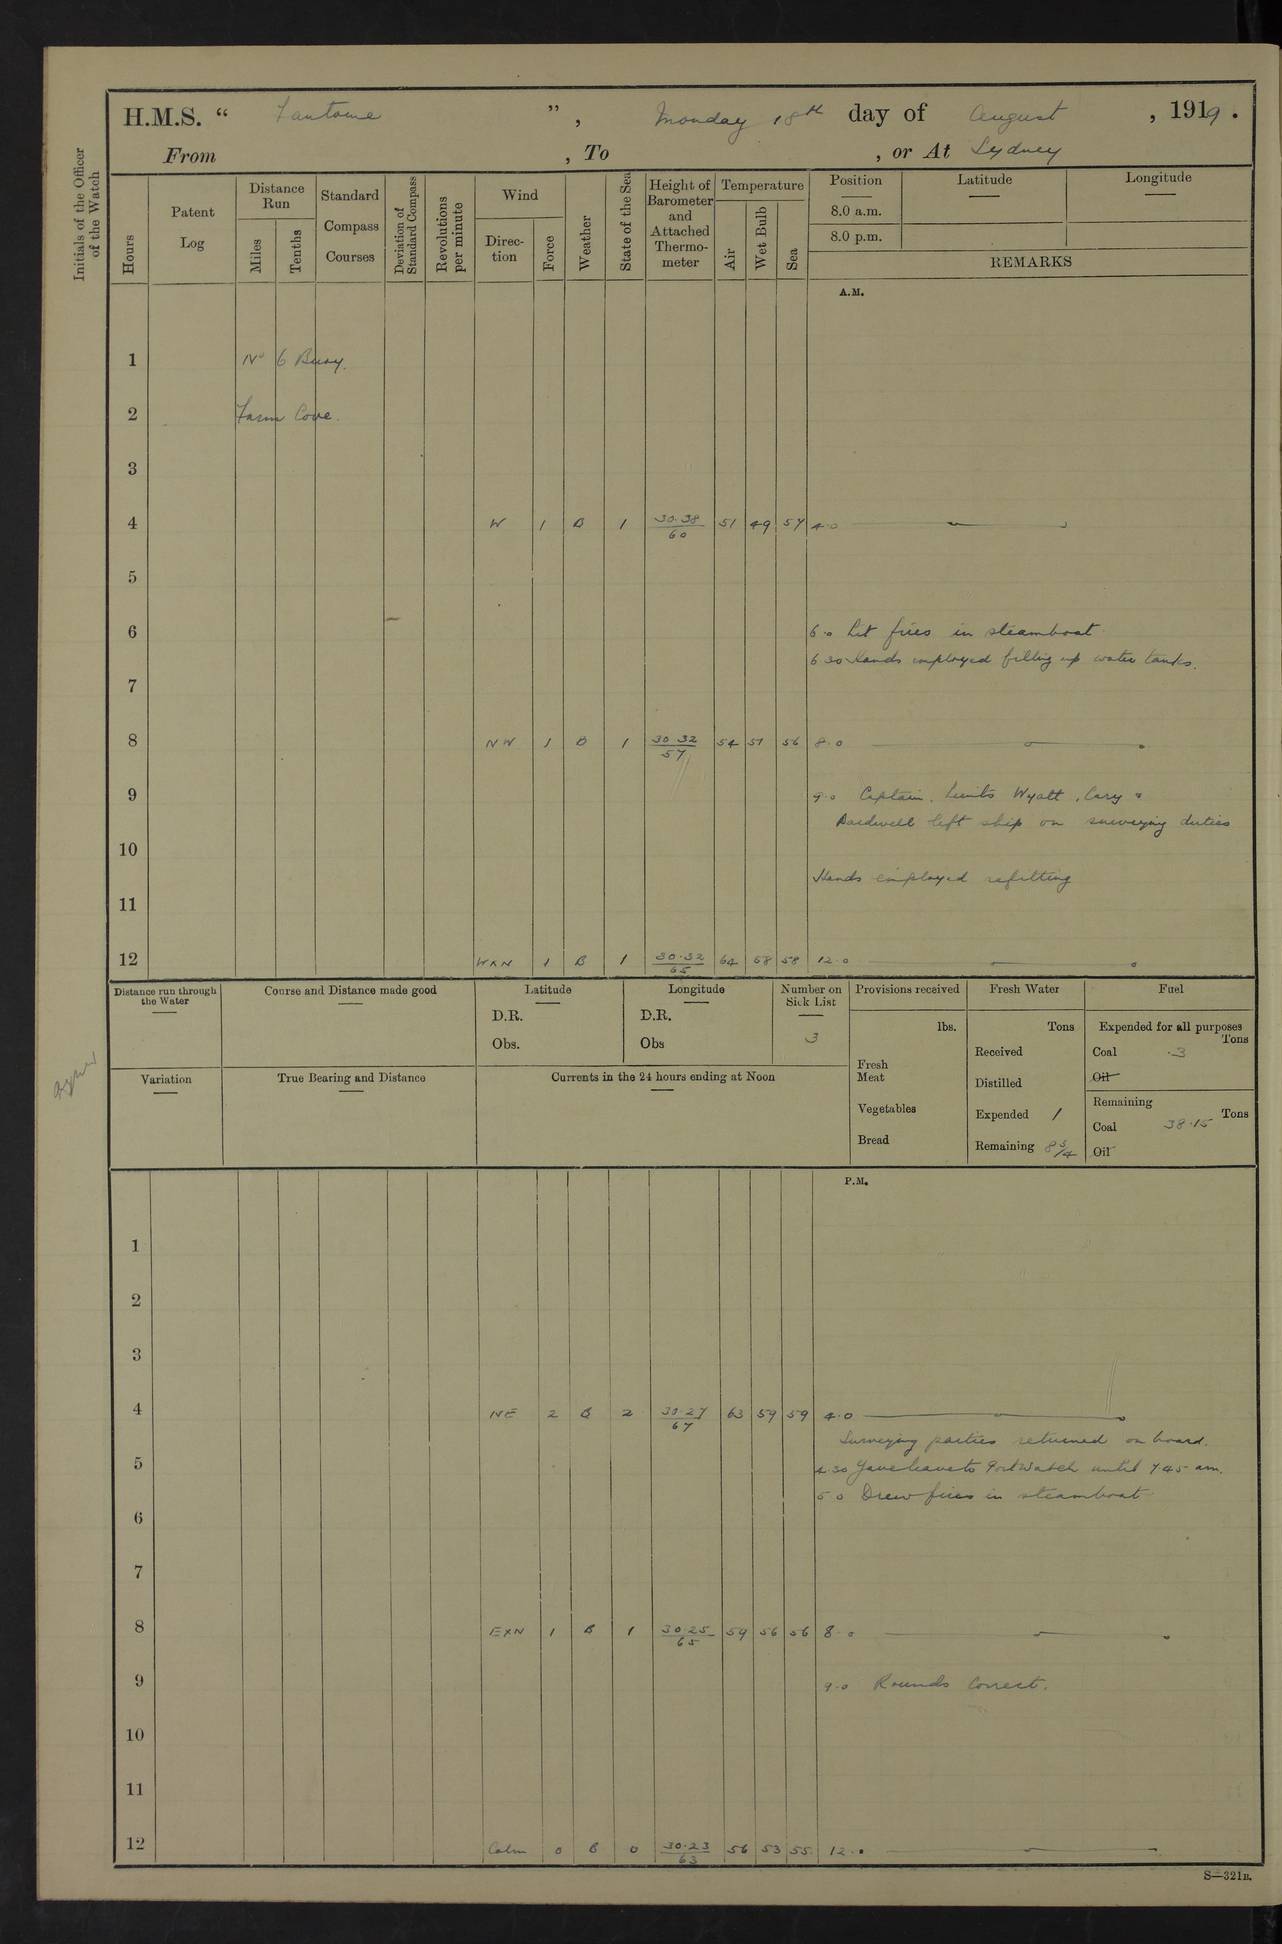 H.M.S. “ Fantome ”, Monday 18th day of August, 1919.
From , To , or At Sydney
Initials of the Officer of the Watch
Hours
Patent Log
Distance Run
Miles
Tenths
Standard Compass Courses
Deviation of Standard Compass
Revolutions per minute
Wind
Direction
Force
Weather
State of the Sea
Height of Barometer and Attached Thermometer
Temperature
Air
Wet Bulb
Sea
Position
8.0 a.m.
8.0 p.m.
Latitude
Longitude
REMARKS
A.M.
1 No 6 Buoy.
2 Farm Cove.
3
4 W 1 B 1 30.38/60 51 49 57 4.0
5
6 6.0 Lit fires in steamboat
6 30 Hands employed filling up water tanks.
7
8 NW 1 B 1 30 32/57 54 51 56 8.0
9 9.0 Captain, Lieuts Wyatt, Cary &
Bardwell left ship on surveying duties
10
Hands employed refitting
11
12 WxN 1 B 1 30.32/65 64 58 58 12.0
Distance run through the Water
Course and Distance made good
Latitude
D.R.
Obs.
Longitude
D.R.
Obs
Number on Sick List
3
Provisions received
lbs.
Fresh Meat
Vegetables
Bread
Fresh Water
Tons
Received
Distilled
Expended 1
Remaining 8 3/4
Fuel
Expended for all purposes
Tons
Coal .3
Oil
Remaining
Tons
Coal 38.15
Oil
Variation
True Bearing and Distance
Currents in the 24 hours ending at Noon
P.M.
1
2
3
4 NE 2 B 2 30.27/67 63 59 59 4.0
Surveying parties returned on board.
5 4.30 Gave leave to Port Watch until 7.45 am.
5 0 Drew fires in steamboat
6
7
8 ExN 1 B 1 30.25/65 59 56 56 8.0
9 9.0 Rounds Correct.
10
11
12 Calm 0 B 0 30.23/63 56 53 55 12.0
S—321B.